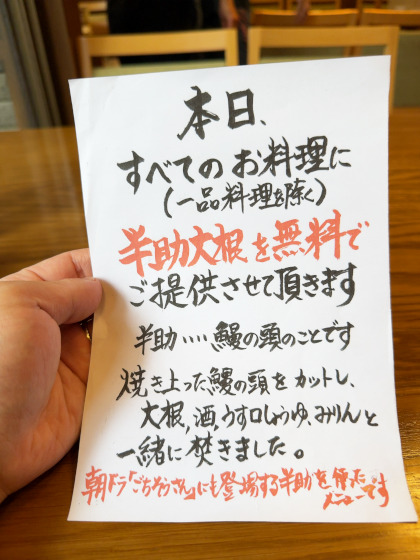 本日、
すべてのお料理に
(一品料理を除く)
半助大根を無料で
ご提供させて頂きます
半助‥‥鰻の頭のことです
焼き上った鰻の頭をカットし、
大根,酒,うす口しょうゆ,みりんと
一緒に焚きました。
朝ドラ「ごちそうさん」にも登場する半助を使った
メニューです